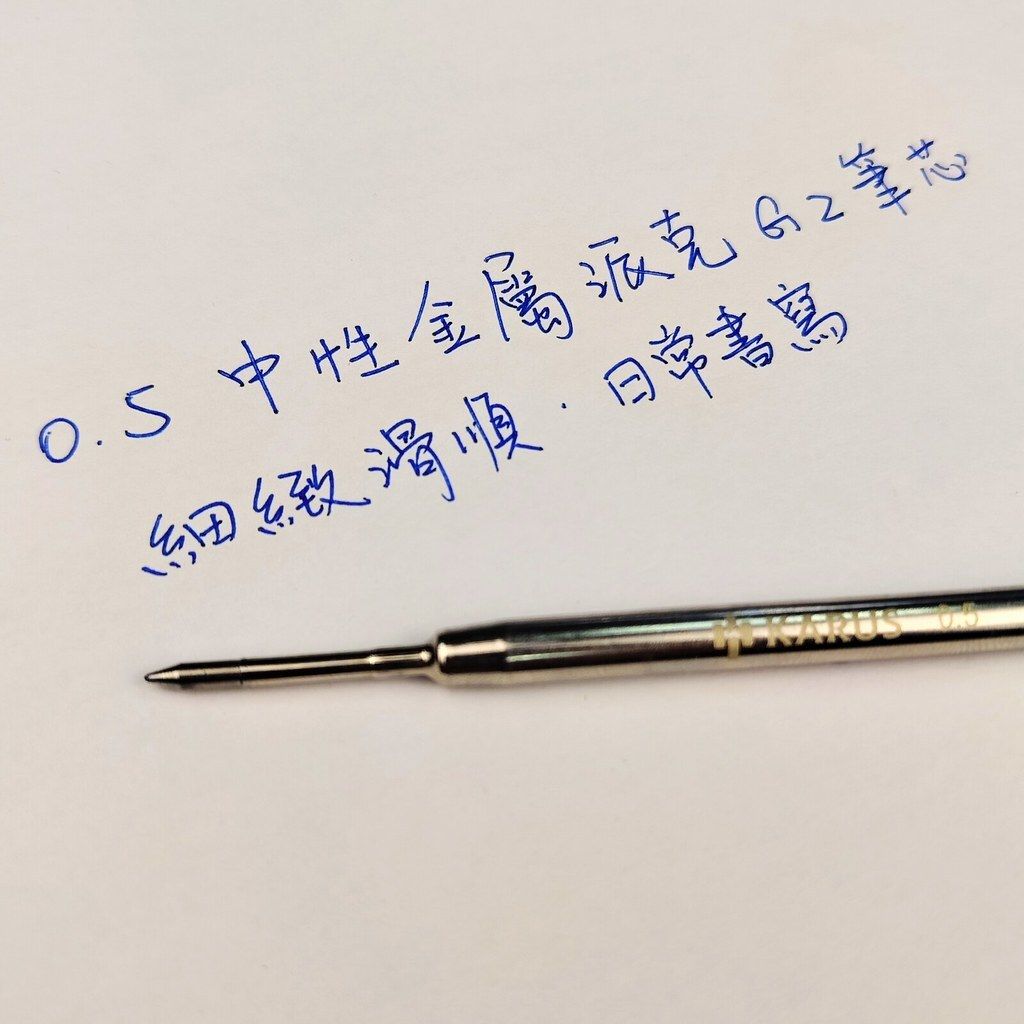 0.5 中性金屬派克 G2 筆芯
細緻滑順．日常書寫
KARUS 0.5